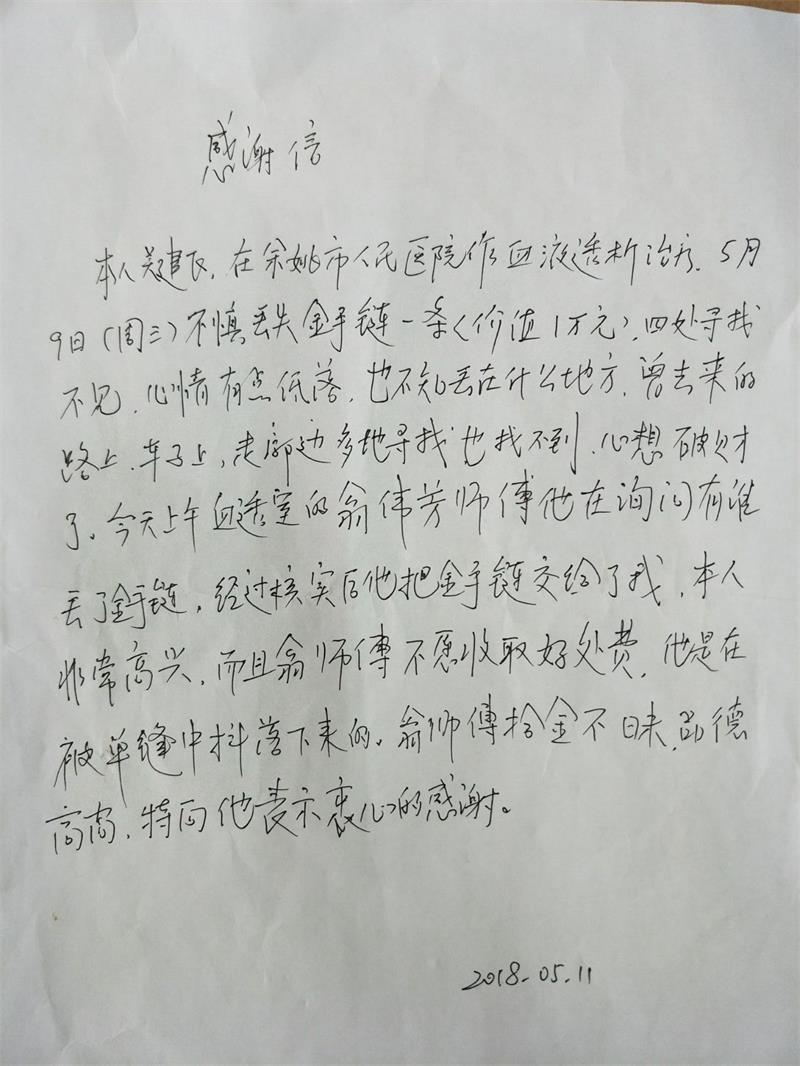 感谢信
本人吴建民，在余姚市人民医院作血液透析治疗．5月
9日（周三）不慎丢失金手链一条（价值1万元），四处寻找
不见，心情有点低落，也不知丢在什么地方，曾去来的
路上、车子上，走廓边多地寻找也找不到，心想破财
了。今天上午血透室的翁伟芳师傅他在询问有谁
丢了金手链，经过核实后他把金手链交给了我，本人
非常高兴，而且翁师傅不愿收取好处费，他是在
被单缝中抖落下来的。翁师傅拾金不日未，品德
高尚，特向他表示衷心的感谢。
2018.05.11